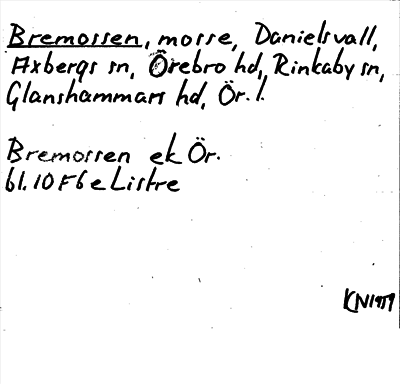 Bremossen, mosse, Danielsvall,
Axbergs sn, Örebro hd, Rinkaby sn,
Glanshammars hd, Ör. l.
Bremossen ek Ör.
bl. 10 F6e Listre
KN 1959